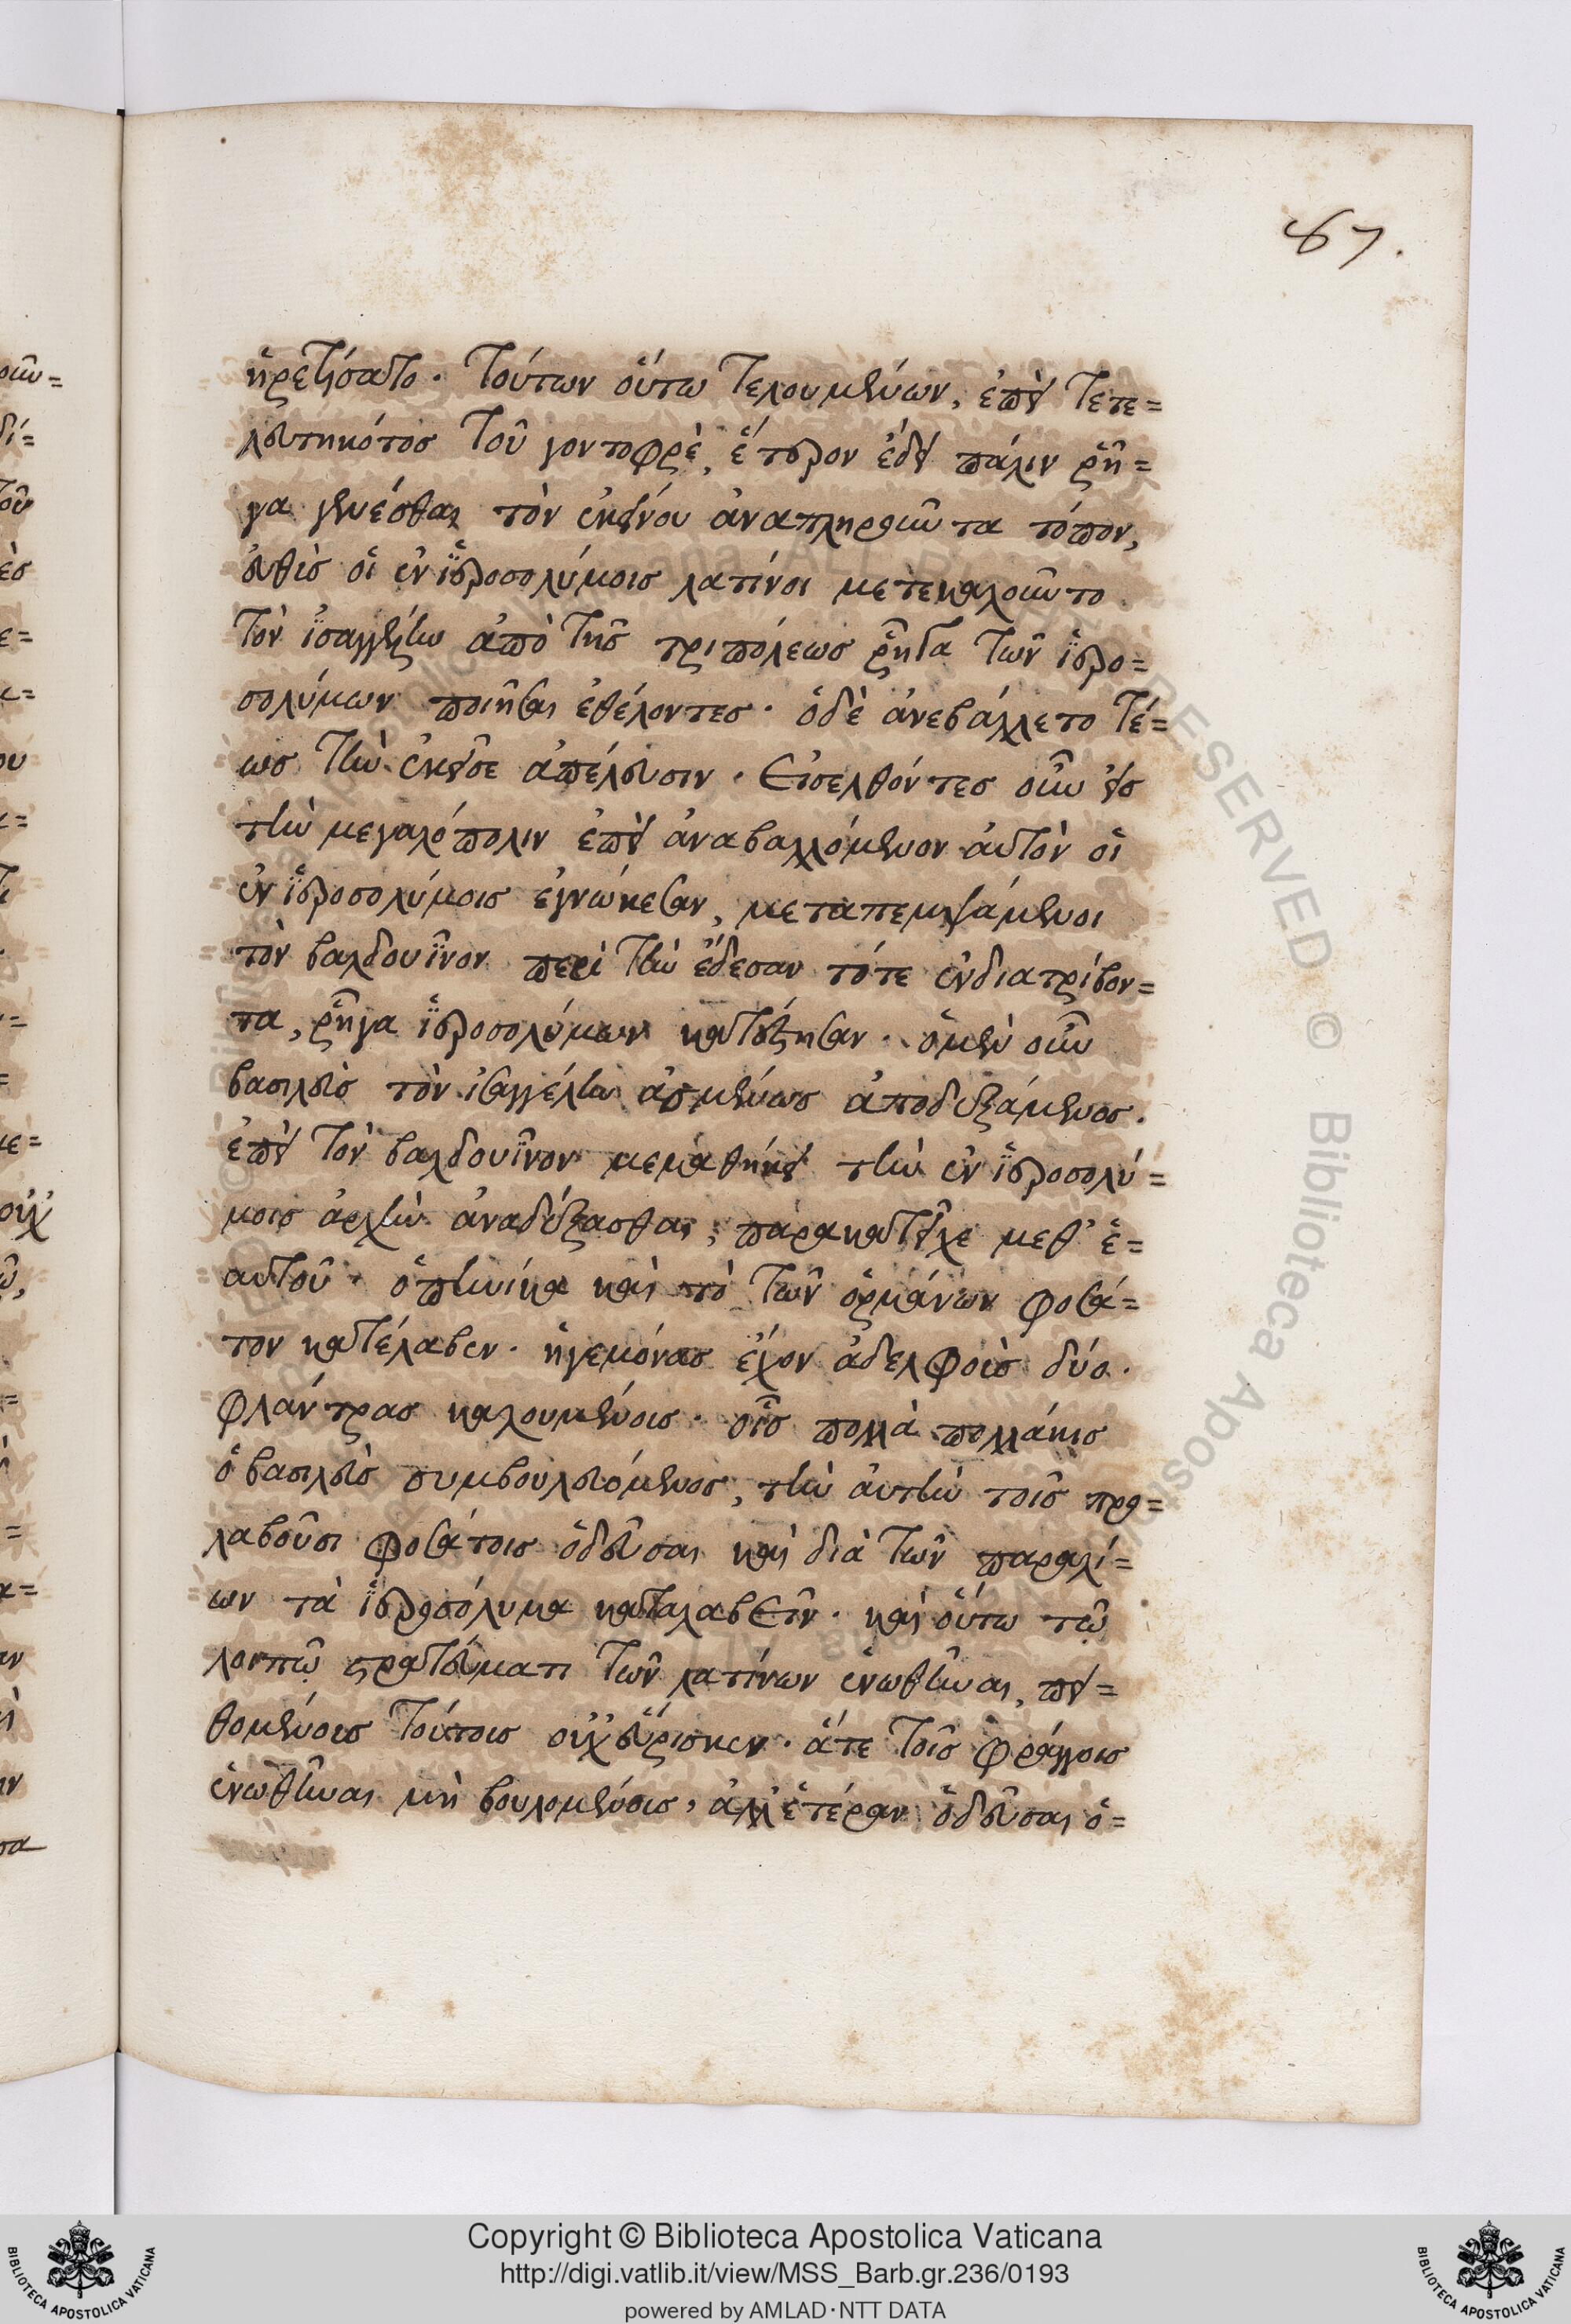 67.
ᾑρετίσατο. Τούτων οὕτω τελουμένων, ἐπεὶ τετε=
λευτηκότος τοῦ γοντοφρὲ, ἕτερον ἔδει πάλιν ῥῆ=
γα γενέσθαι τὸν ἐκείνου ἀναπληροῦντα τόπον,
εὐθὺς οἱ ἐν ἱεροσολύμοις λατίνοι μετεκαλοῦντο
τὸν ἰσαγγέλην ἀπὸ τῆς τριπόλεως ῥῆγα τῶν ἱερο=
σολύμων ποιῆσαι ἐθέλοντες. ὁ δὲ ἀνεβάλλετο τέ=
ως τὴν ἐκεῖσε ἀπέλευσιν. Εἰσελθόντες οὖν εἰς
τὴν μεγαλόπολιν ἐπεὶ ἀναβαλλόμενον αὐτὸν οἱ
ἐν ἱεροσολύμοις ἐγνώκεσαν, μεταπεμψάμενοι
τὸν βαλδουῖνον περὶ τὴν ἔδεσαν τότε ἐνδιατρίβον=
τα, ῥῆγα ἱεροσολύμων κατέστησαν. ὁ μὲν οὖν
βασιλεὺς τὸν ἰσαγγέλην ἀσμένως ἀποδεξάμενος.
ἐπεὶ τὸν βαλδουῖνον μεμαθήκει τὴν ἐν ἱεροσολύ=
μοις ἀρχὴν ἀναδέξασθαι, παρακατεῖχε μεθ' ἑ=
αυτοῦ. ὁπηνίκα καὶ τὸ τῶν ὁρμάνων φοσά=
τον κατέλαβεν. ἡγεμόνας ἔχον ἀδελφοὺς δύο.
φλάντρας καλουμένους. οἷς πολλὰ πολλάκις
ὁ βασιλεὺς συμβουλευόμενος, τὴν αὐτὴν τοῖς προ=
λαβοῦσι φοσάτοις ὁδεῦσαι καὶ διὰ τῶν παραλί=
ων τὰ ἱεροσόλυμα καταλαβεῖν. καὶ οὕτω τῷ
λοιπῷ στρατεύματι τῶν λατίνων ἑνωθῆναι, πει=
θομένους τούτους οὐχ εὕρισκεν. ἅτε τοῖς φράγγοις
ἑνωθῆναι μὴ βουλομένους, ἀλλ' ἑτέραν ὁδεῦσαι ὁ=
Copyright © Biblioteca Apostolica Vaticana
http://digi.vatlib.it/view/MSS_Barb.gr.236/0193
powered by AMLAD·NTT DATA